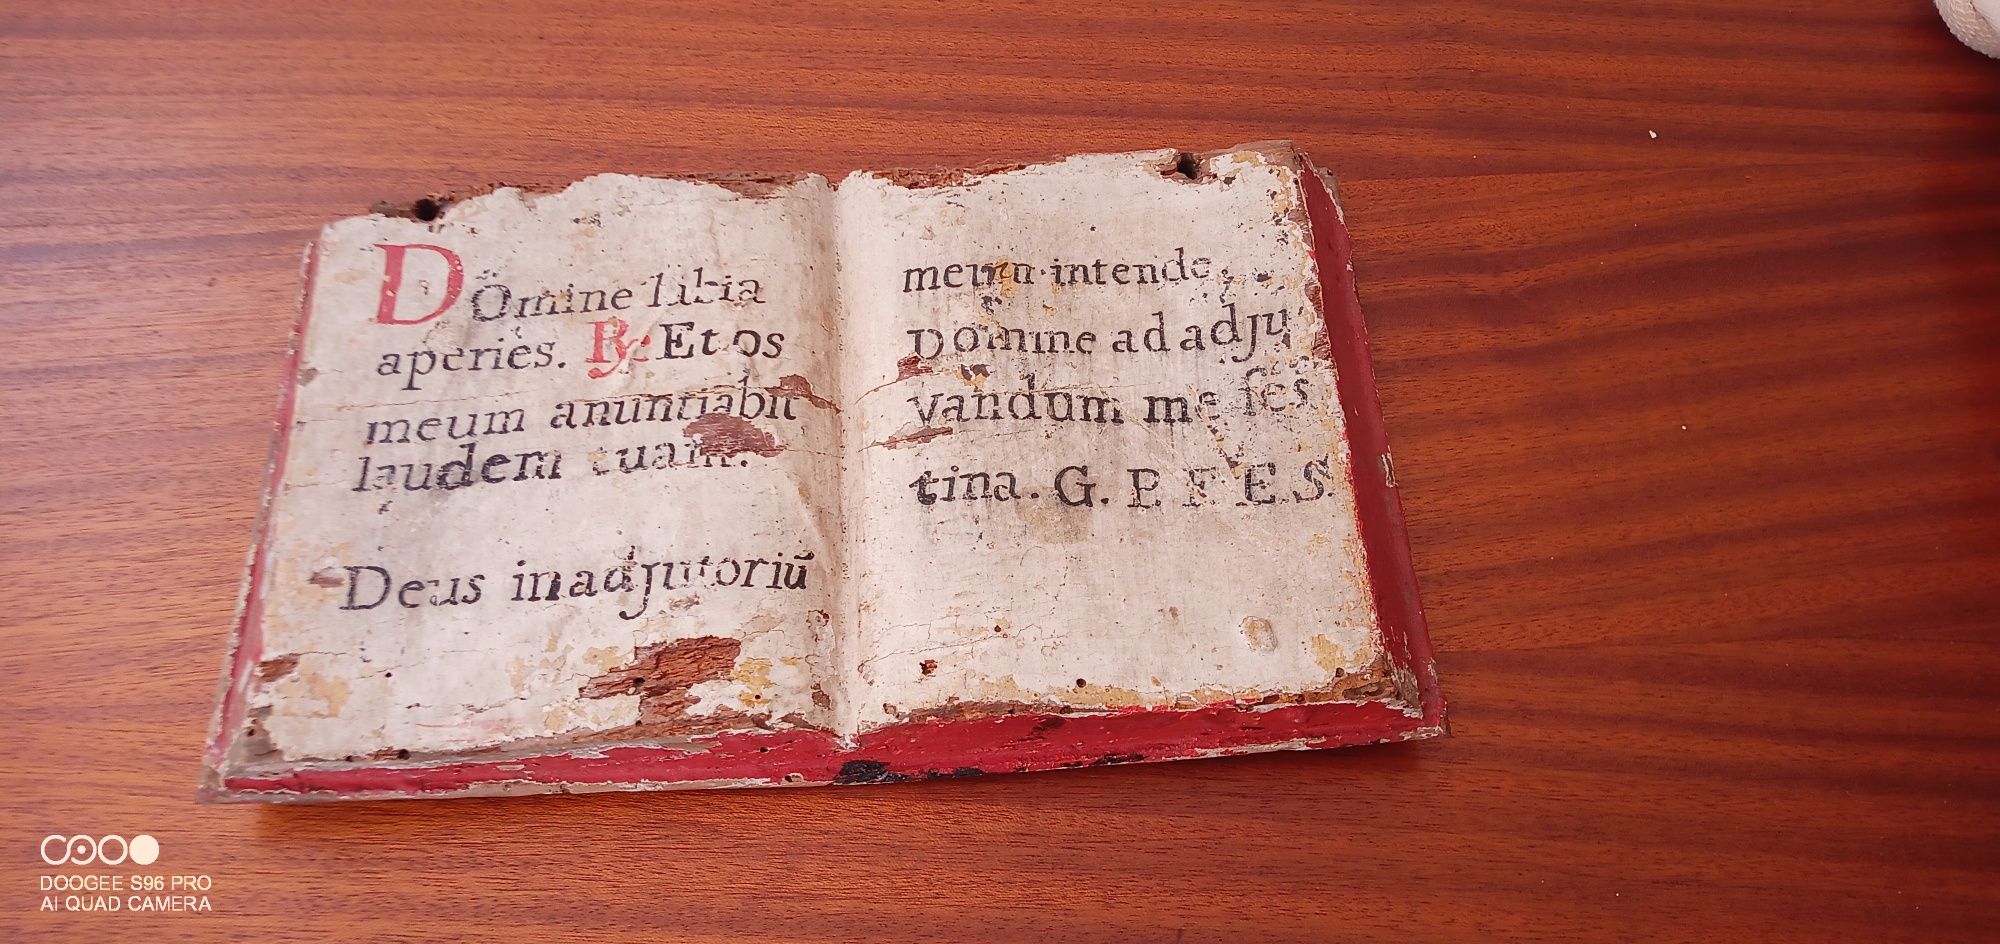 DOmine libia
aperies. ℟. Et os
meum anuntiabit
laudem tuam.
Deus inadjutoriũ
meum intende,
Domine ad adju
vandum me fes
tina. G. P. F. E. S.
DOOGEE S96 PRO
AI QUAD CAMERA